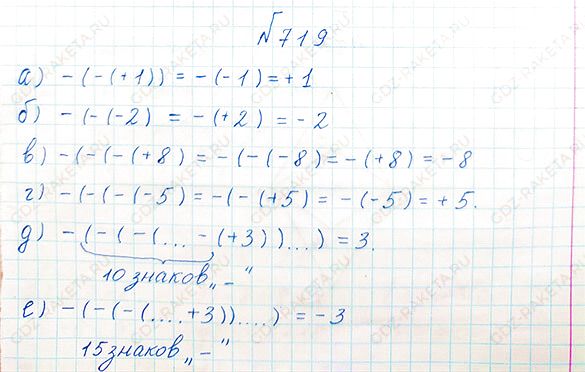 №719
а) -(-(+1)) = -(-1) = +1
б) -(-(-2) = -(+2) = -2
в) -(-(-(+8) = -(-(-8) = -(+8) = -8
г) -(-(-(-5) = -(-(+5) = -(-5) = +5.
д) -(-(-(...-(+3))...) = 3.
10 знаков „-“
е) -(-(-(....+3))....) = -3
15 знаков „-“
GDZ-RAKETA.RU